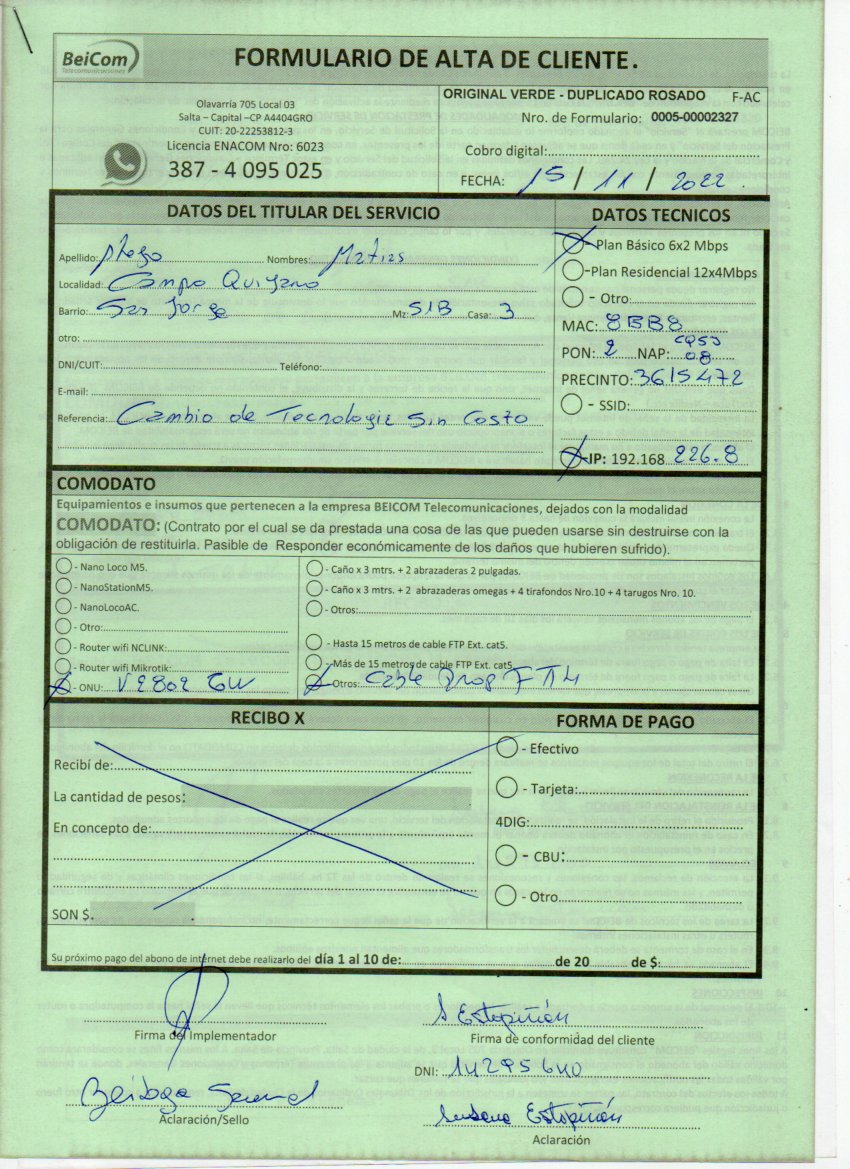 BeiCom
Telecomunicaciones
FORMULARIO DE ALTA DE CLIENTE.
Olavarría 705 Local 03
Salta – Capital –CP A4404GRO
CUIT: 20-22253812-3
Licencia ENACOM Nro: 6023
387 - 4 095 025
ORIGINAL VERDE - DUPLICADO ROSADO F-AC
Nro. de Formulario: 0005-00002327
Cobro digital:
FECHA: 15 / 11 / 2022.
DATOS DEL TITULAR DEL SERVICIO
Apellido: Nombres: Matias
Localidad: Campo Quijano
Barrio: San Jorge Mz: 51B Casa: 3
otro:
DNI/CUIT: Teléfono:
E-mail:
Referencia: Cambio de Tecnologia Sin Costo
DATOS TECNICOS
Plan Básico 6x2 Mbps
-Plan Residencial 12x4Mbps
- Otro:
MAC: 8BB8
PON: 2 NAP: 08
PRECINTO: 3615472
- SSID:
IP: 192.168. 226.8
COMODATO
Equipamientos e insumos que pertenecen a la empresa BEICOM Telecomunicaciones, dejados con la modalidad
COMODATO: (Contrato por el cual se da prestada una cosa de las que pueden usarse sin destruirse con la
obligación de restituirla. Pasible de Responder económicamente de los daños que hubieren sufrido).
- Nano Loco M5.
- NanoStationM5.
- NanoLocoAC.
- Otro:
- Router wifi NCLINK:
- Router wifi Mikrotik:
- ONU: V2802 GW
- Caño x 3 mtrs. + 2 abrazaderas 2 pulgadas.
- Caño x 3 mtrs. + 2 abrazaderas omegas + 4 tirafondos Nro.10 + 4 tarugos Nro. 10.
- Otros:
- Hasta 15 metros de cable FTP Ext. cat5.
- Más de 15 metros de cable FTP Ext. cat5
Otros: Cable Drop
RECIBO X
Recibí de:
La cantidad de pesos:
En concepto de:
SON $.
FORMA DE PAGO
- Efectivo
- Tarjeta:
4DIG:
- CBU:
- Otro
Su próximo pago del abono de internet debe realizarlo del día 1 al 10 de: de 20 de $:
Firma del Implementador
Aclaración/Sello
S Estopiñán
Firma de conformidad del cliente
DNI: 14295640
Susana Estopiñán
Aclaración